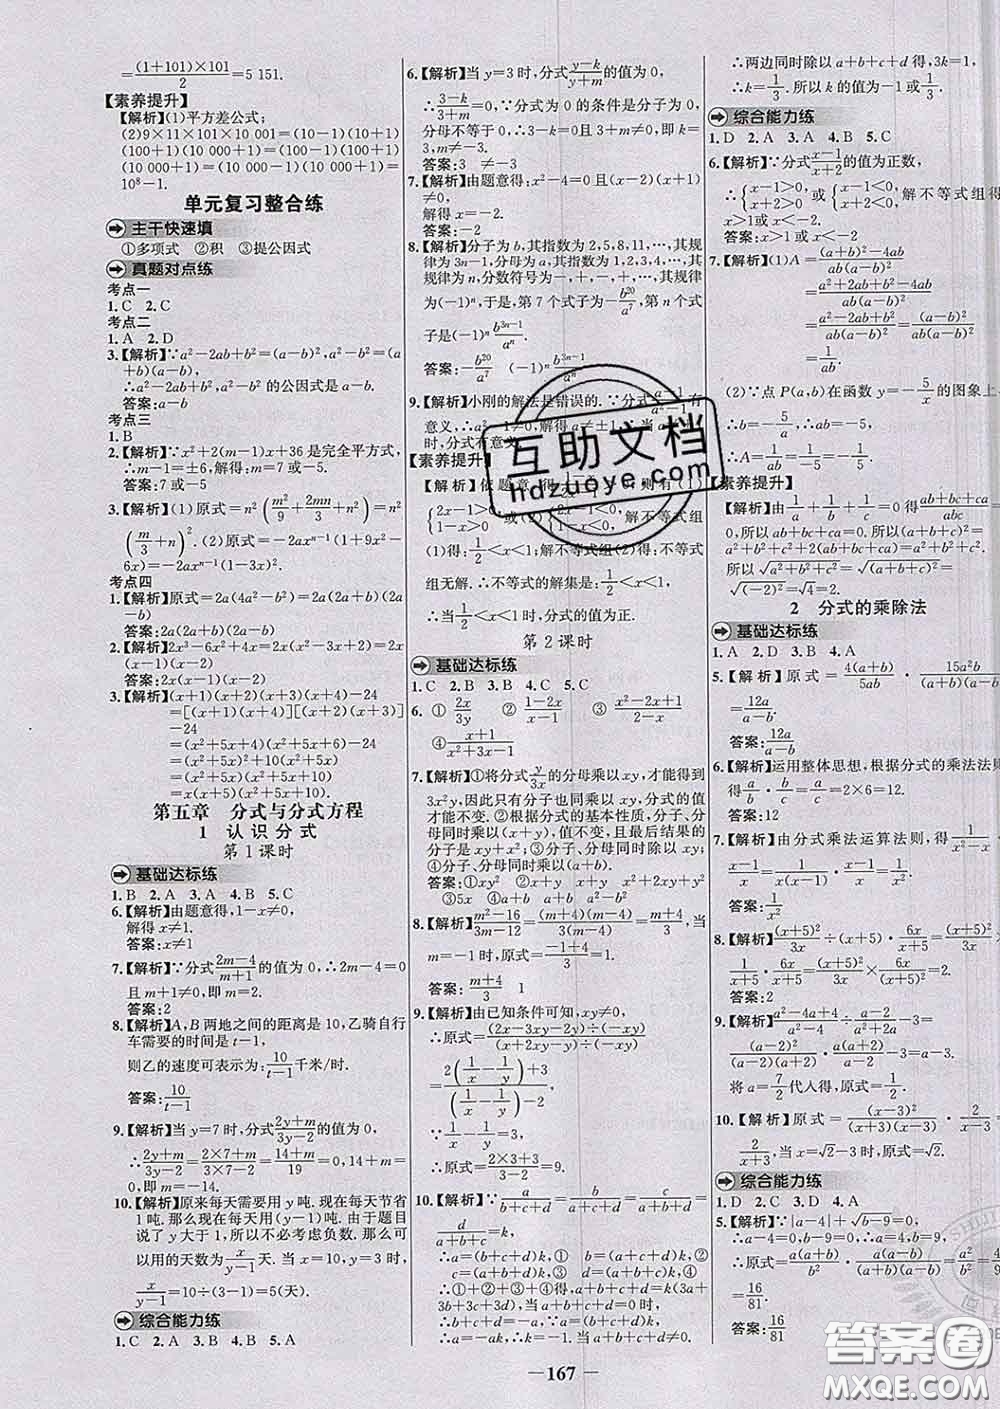 =(1+101)×101/2=5 151.
【素养提升】
【解析】(1)平方差公式;
(2)9×11×101×10 001=(10-1)(10+1)
(100+1)(10 000+1)=(100-1)
(100+1)(10 000+1)=(10 000-1)
(10 000+1)=
10⁸-1.
单元复习整合练
主干快速填
①多项式 ②积 ③提公因式
真题对点练
考点一
1. C 2. C
考点二
1. A 2. D
3.【解析】∵a²-2ab+b²=(a-b)²,a²-b²=(a
+b)(a-b),
∴a²-2ab+b²,a²-b²的公因式是a-b.
答案:a-b
考点三
1. B
2.【解析】∵x²+2(m-1)x+36是完全平方式,
∴m-1=±6,解得:m=7或-5.
答案:7或-5
3.【解析】(1)原式=n²(m²/9+2mn/3+n²)=n²
(m/3+n)². (2)原式=-2axⁿ⁻¹(1+9x²-
6x)=-2axⁿ⁻¹(1-3x)².
考点四
1.【解析】原式=2a(4a²-b²)=2a(2a+b)
(2a-b)
答案:2a(2a+b)(2a-b)
2.【解析】2x³-6x²+4x=2x(x²-3x+2)=2x
(x-1)(x-2)
答案:2x(x-1)(x-2)
3.【解析】(x+1)(x+2)(x+3)(x+4)-24
=[(x+1)(x+4)][(x+2)(x+3)]
-24
=(x²+5x+4)(x²+5x+6)-24
=(x²+5x)²+10(x²+5x)
=(x²+5x)(x²+5x+10)
=x(x+5)(x²+5x+10).
第五章 分式与分式方程
1 认识分式
第1课时
基础达标练
1. B 2. A 3. A 4. B 5. C
6.【解析】由题意得,1-x≠0,
解得x≠1.
答案:x≠1
7.【解析】∵分式(2m-4)/(m+1)的值为0,∴2m-4=0
且m+1≠0,即m=2.
答案:2
8.【解析】A,B两地之间的距离是10,乙骑自行
车需要的时间是t-1,
则乙的速度可表示为:10/(t-1)千米/时.
答案:10/(t-1)
9.【解析】当y=7时,分式(2y+m)/(3y-2)的值为0,
∴(2y+m)/(3y-2)=(2×7+m)/(3×7-2)=(14+m)/19=0,14+m=0,
∴m=-14.
10.【解析】原来每天需要用y吨.现在每天节省
1吨.那么现在每天用(y-1)吨.由于题目
说了y大于1,所以不必考虑负数.那么可
以用的天数为x/(y-1)天.当x=10,y=3时,
x/(y-1)=10÷(3-1)=5(天).
综合能力练
1. C 2. A 3. A 4. B 5. C
6.【解析】当y=3时,分式(y-k)/(y+m)的值为0,
∴(3-k)/(3+m)=0;∵分式为0的条件是分子为0,
分母不等于0,∴3-k=0,3+m≠0,即k=
3,m≠-3.
答案:3 ≠-3
7.【解析】由题意得:x²-4=0且(x-2)(x+1)≠0,
解得x=-2.
答案:-2
8.【解析】分子为b,其指数为2,5,8,11,…,其规
律为3n-1,分母为a,其指数为1,2,3,4,…,其
规律为n,分数符号为-,+,-,+,…,其规
律为(-1)ⁿ,于是,第7个式子为-b²⁰/a⁷,第n个式
子是(-1)ⁿ b³ⁿ⁻¹/aⁿ.
答案:-b²⁰/a⁷ (-1)ⁿ b³ⁿ⁻¹/aⁿ
9.【解析】小刚的解法是错误的.∵分式(a-1)/(a²-1)有
意义,∴a²-1≠0,解得a≠±1,∴当a≠±1
时,分式有意义.
【素养提升】
【解析】依题意,得 则有(1)
{2x-1>0, 1-x>0;或(2){2x-1<0, 1-x<0,解不等式组
(1)得:1/2<x<1;解不等式组(2)得:不等式
组无解.∴不等式的解集是:1/2<x<1,
∴当1/2<x<1时,分式的值为正.
第2课时
基础达标练
1. C 2. B 3. B 4. C 5. C
6. ①2x/3y ②(1-2x)/(x-1) ③(x²-x+3)/(2-x)
④(x+1)/(x²+3x-1)
7.【解析】①将分式y/3x的分母乘以xy,才能得到
3x²y,因此只有分子也同乘以xy,分式的值才能
不变.②根据分式的基本性质,分子、分
母同时乘以x,值不变,且最后结果的
分子是xy+x²;③分子、分母同时除以xy;④
分子、分母同时乘以(a+b).
答案:①xy² ②x+y x xy+x² x²
③5x ④a+b a+b a²-b² a²-b²
8.【解析】(m²-16)/(3m-12)=(m+4)(m-4)/3(m-4)=(m+4)/3,当
m=-1时,原式=(-1+4)/3=1.
答案:(m+4)/3 1
9.【解析】由已知条件可知,xy≠0,
∴原式=(2x-3xy-2y)÷(-xy)/(x+2xy-y)÷(-xy)
=(2(1/x-1/y)+3)/((1/x-1/y)-2)
∵1/x-1/y=3,
∴原式=(2×3+3)/(3-2)=9.
10.【解析】∵a/(b+c+d)=b/(a+c+d)=c/(a+b+d)=
d/(a+b+c)=k,
∴a=(b+c+d)k,①b=(a+c+d)k,②
c=(a+b+d)k,③d=(a+b+c)k,④
∴①+②+③+④得,a+b+c+d=k(3a+
3b+3c+3d),当a+b+c+d=0时,
∴b+c+d=-a,∵a=(b+c+d)k,
∴a=-ak,∴k=-1,当a+b+c+d≠0时,
∴两边同时除以a+b+c+d得,3k=1,
∴k=1/3.所以k的值为-1或1/3.
综合能力练
1. D 2. A 3. A 4. B 5. C
6.【解析】∵分式(x-1)/(x+2)的值为正数,
∴{x-1>0, x+2>0;或{x-1<0, x+2<0,解不等式组得
x>1或x<-2.
答案:x>1或x<-2
7.【解析】(1)A=((a+b)²-4ab)/ab(a-b)²
=(a²+2ab+b²-4ab)/ab(a-b)²
=(a²-2ab+b²)/ab(a-b)²=(a-b)²/ab(a-b)²
=1/ab.
(2)∵点P(a,b)在函数y=-5/x的图象上,
∴b=-5/a,∴ab=-5,
∴A=1/ab=1/-5=-1/5.
【素养提升】
【解析】由1/a+1/b+1/c=0得(ab+bc+ca)/abc=
0,所以ab+bc+ca=0.所以(a+b+c)²=
a²+b²+c²+2(ab+bc+ca)=a²+b²+c²,
所以√(a²+b²+c²)=√(a+b+c)²=
√(-2)²=√4=2.
2 分式的乘除法
基础达标练
1. A 2. D 3. B 4. A
5.【解析】原式=4(a+b)/5ab·15a²b/(a+b)(a-b)
=12a/(a-b).
答案:12a/(a-b)
6.【解析】运用整体思想,根据分式的乘法法则
得a/b·b/c=a/c=2×6=12.
答案:12
7.【解析】由分式乘法运算法则,得1/(x²-x)÷
1/(x-1)=1/x(x-1)·(x-1)/x=1/x².
答案:1/x²
8.【解析】(x+5)²/3x÷(x+5)·6x/(x+5)=(x+5)²/3x·
1/(x+5)·6x/(x+5)=(x+5)²/3x×6x/(x+5)²=2.
答案:2
9.【解析】(a²-4a+4)/(a²-4)÷(a-2)/(a²+2a)-3=
(a-2)²/(a-2)(a+2)·a(a+2)/(a-2)-3=a-3.
将a=7/2代入得,原式=1/2.
10.【解析】原式=(x-3)²/(x+3)(x-3)·2/(x-3)=
2/(x+3),当x=√2-3时,原式=√2.
综合能力练
1. D 2. C 3. D 4. A
5.【解析】∵|a-4|+√(b-9)=0,
∴a-4=0,b-9=0,∴a=4,b=9,
∴原式=a(a+b)/b²·a(a-b)/(a+b)(a-b)=a²/b²=
16/81.
答案:16/81
— 167 —
互助文档
hdzuoye.com
答案圈
MXQE.COM